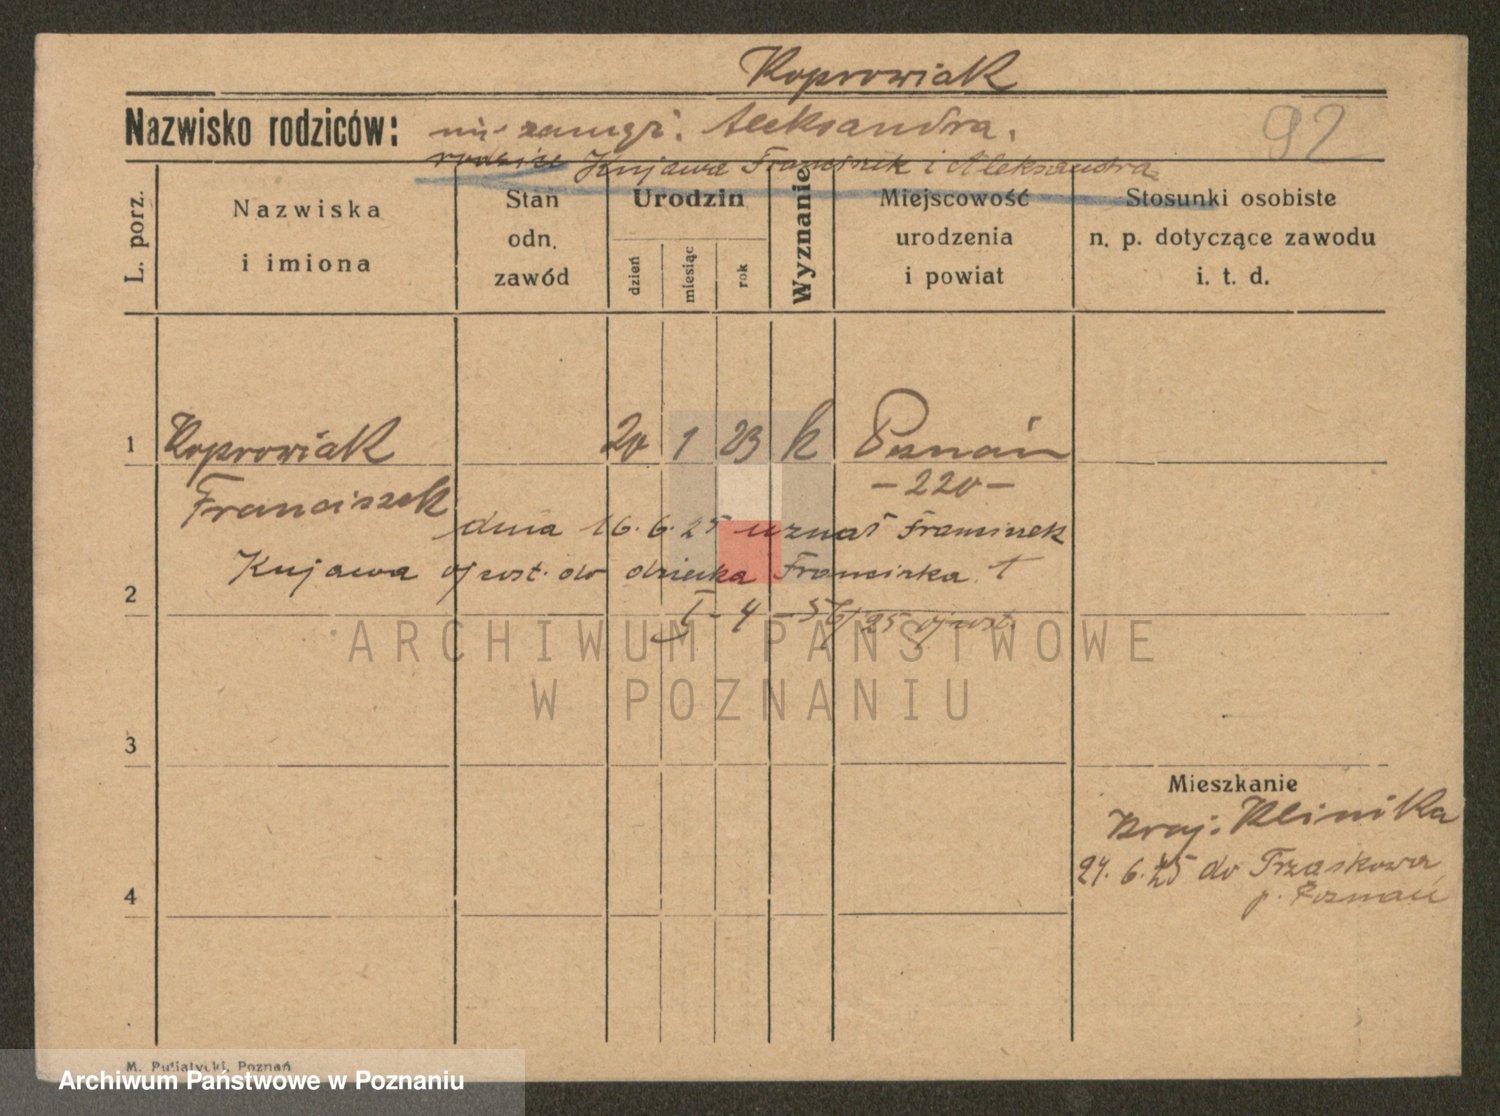 Koprowiak
Nazwisko rodziców: Aleksandra.
92
rodzice Kujawa Franciszek i Aleksandra
L. porz.
Nazwiska
i imiona
Stan
odn.
zawód
Urodzin
dzień
miesiąc
rok
Wyznanie
Miejscowość
urodzenia
i powiat
Stosunki osobiste
n. p. dotyczące zawodu
i. t. d.
1 Koprowiak 20 1 23 k Poznań
Franciszek - 220 -
dnia 16. 6. 25 uznał Franciszek
Kujawa ojcost. do dziecka Franciszka
2
4 - 56/25 ojcost.
ARCHIWUM PAŃSTWOWE
W POZNANIU
3
Mieszkanie
Kraj. Klinika
4 24. 6. 25 do Trzaskowa
p. Poznań
M. Putiatycki, Poznań
Archiwum Państwowe w Poznaniu